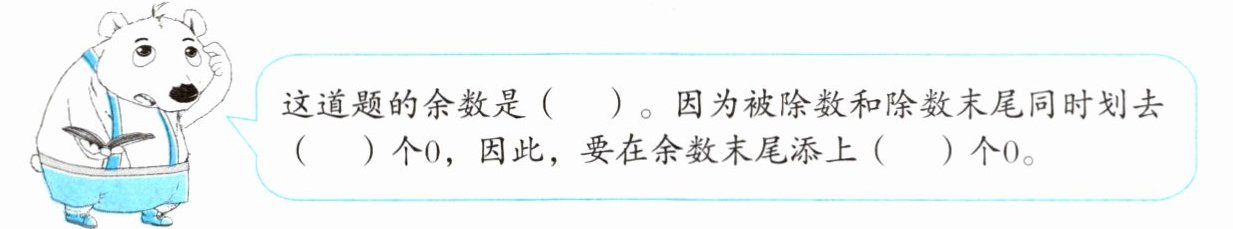 这道题的余数是（　　）。因为被除数和除数末尾同时划去
（　　）个0，因此，要在余数末尾添上（　　）个0。